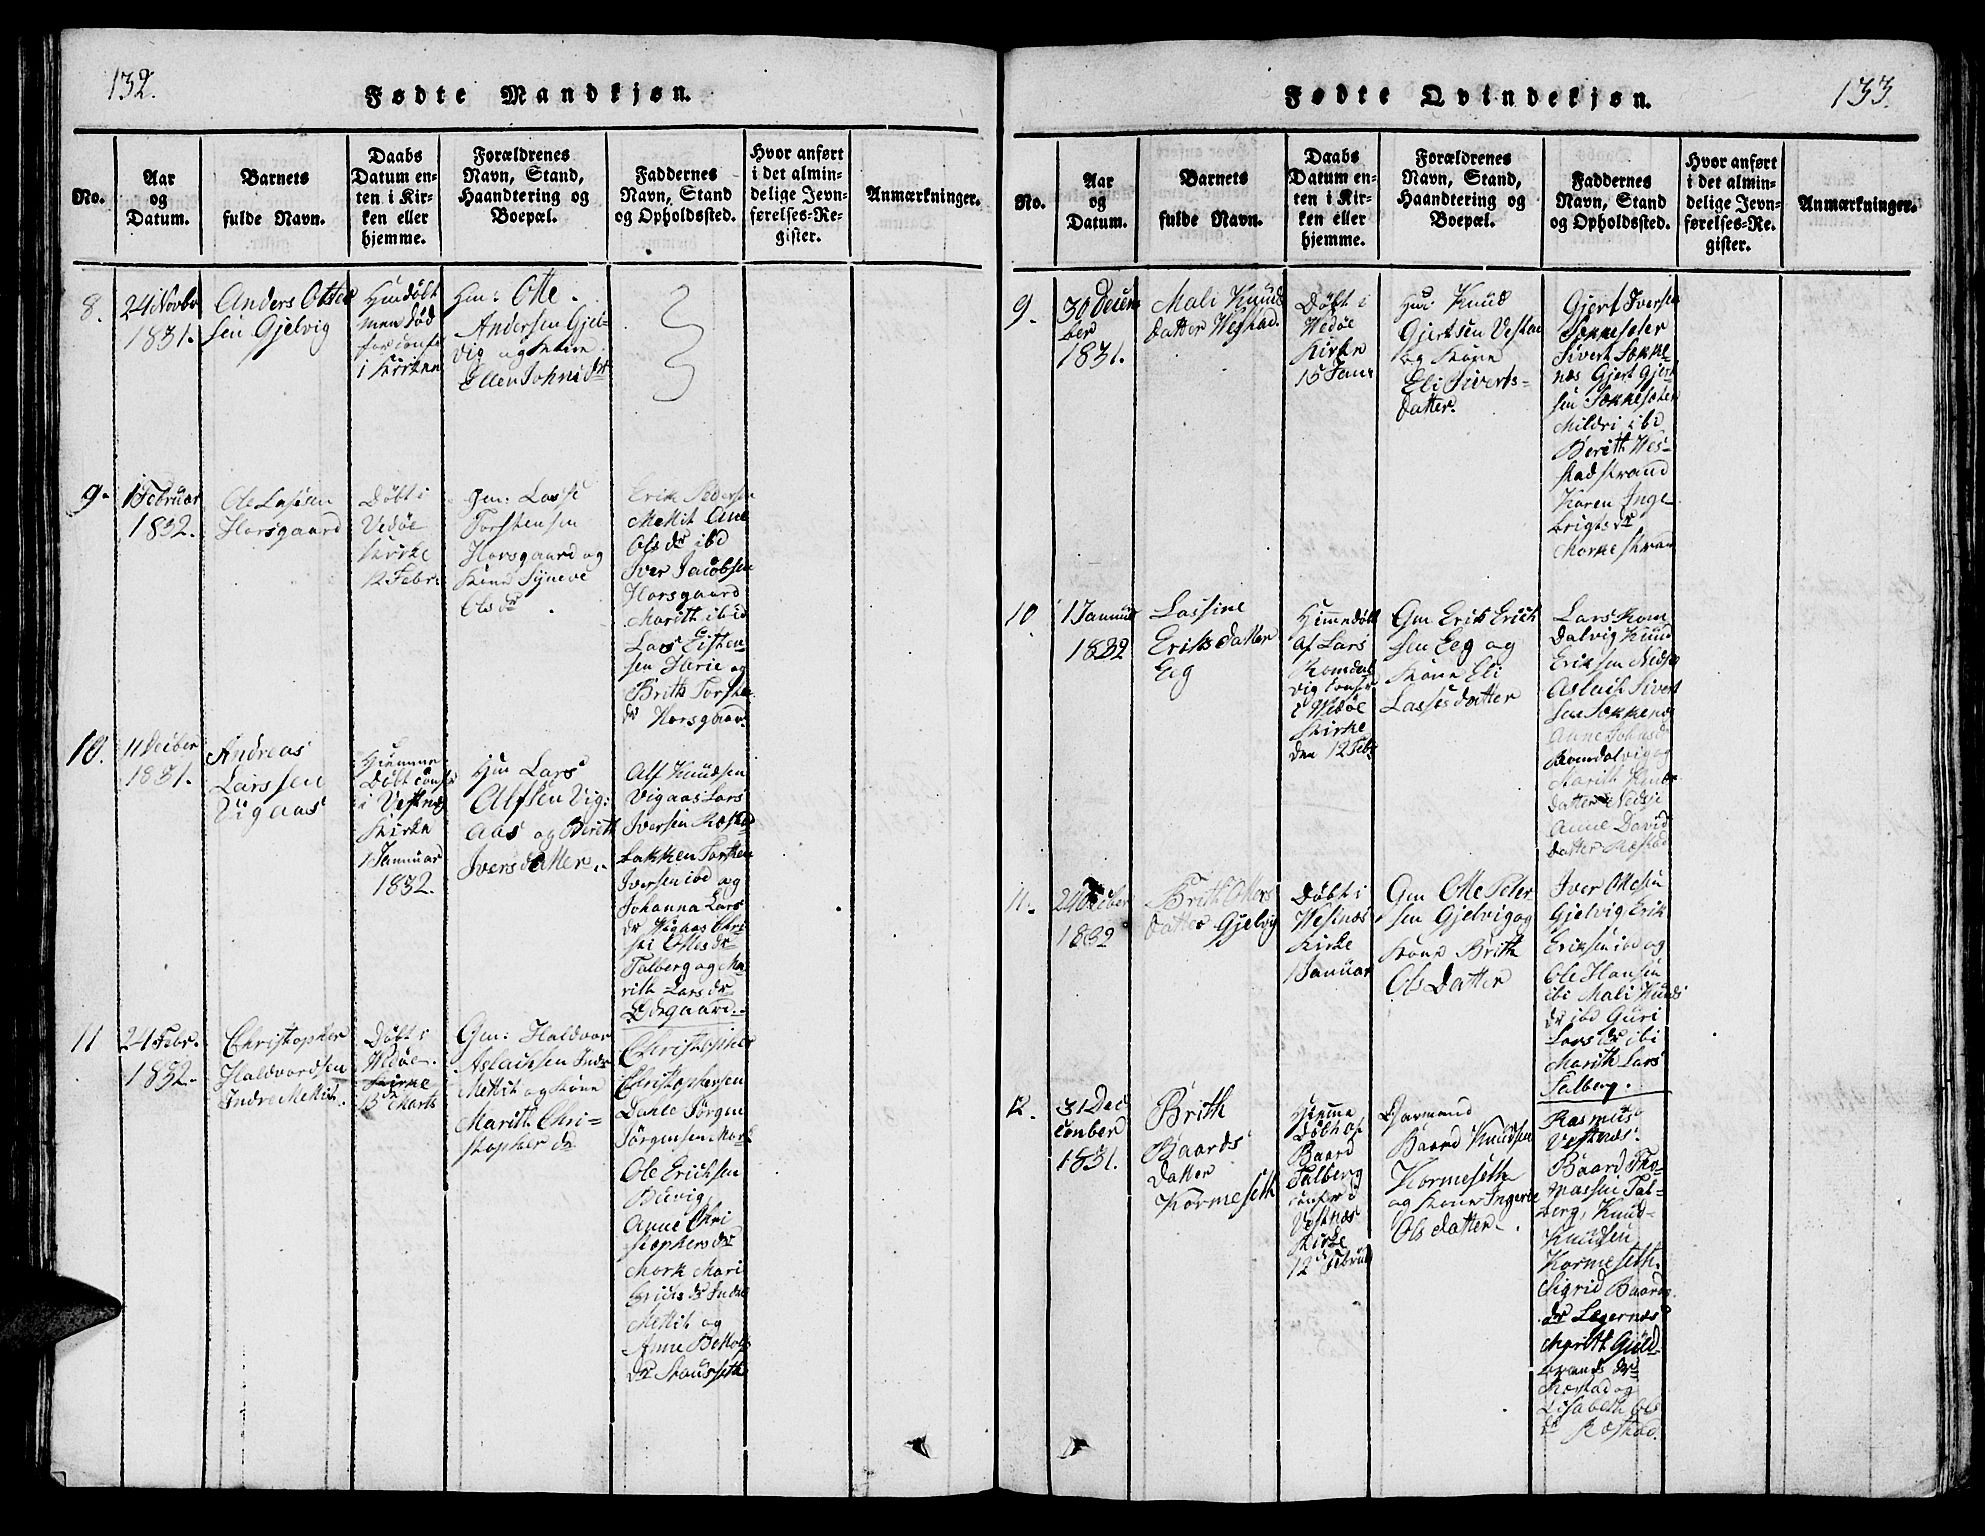 132.
Fødte Mandkjøn.
No.
Aar
og
Datum.
Barnets
fulde Navn.
Daabs
Datum en-
ten i Kir-
ken eller
hjemme.
Forældrenes
Navn, Stand,
Haandtering og
Boepæl.
Faddernes
Navn, Stand
og Opholdssted.
Hvor anført
i det almin-
delige Jevn-
førelses-Re-
gister.
Anmærkninger.
8.
24 Novbr
1831.
Anders Otte
sen Gjelvig
Hmdøbt
men død
før conf
i Kirken
Gm: Otte
Andersen Gjel-
vig og Kone
Ellen Johns dr
9.
1 Februar
1832.
Ole Lassen
Horsgaard
Døbt i
Vedøe
Kirke
12 Febr:
Gm: Lasse
Torstensen
Horsgaard og
Kone Syneve
Ols dr
Erik Pedersen
Mettit Ane
Ols dr ibd
Iver Jacobsen
Horsgaard
Marith ibid
Lars Eisten-
sen Farie og
Brith Torsten
dr Horsgaard
10.
11 Deciber
1831.
Andreas
Larssen
Vigaas
Hiemme
Døbt conf
i Vestnæs
Kirke
1 Januar
1832.
Gm Lars
Alfsen Vig-
aas og Berith
Ivers datter.
Alf Knudsen
Vigaas Lars
Iversen Ræstad
bakken Torsten
Iversen ibd og
Johanna Lars
dr Wigaas Chri-
sti Ottes dr
Talberg og Ma-
rith Lars dr
Ødegaard.
11
24 Febr.
1832.
Christopher
Haldvordsen
Indre Mettit.
Døbt i
Wedøe
Kirke
15 Marts
Gm: Haldvor
Aslaksen Indre
Mettit og Kone
Marith Chri-
stopher dr
Christopher
Christophersen
Dahle Jørgen
Jørgensen Mork
Ole Erichsen
Buvig
Anne Chri
stophers dr
Mork Mari
Erichs dr Indre
Mettit og
Anne
dr
133.
Fødte Qvindekjøn.
No.
Aar
og
Datum.
Barnets
fulde Navn.
Daabs
Datum en-
ten i Kir-
ken eller
hjemme.
Forældrenes
Navn, Stand,
Haandtering og
Boepæl.
Faddernes
Navn, Stand
og Opholdssted.
Hvor anført
i det almin-
delige Jevn-
førelses-Re-
gister.
Anmærkninger.
9.
30 Decem
ber
1831.
Mali Knuds
datter Westad.
Døbt i
Wedøe
Kirke
15 Janr
Gm: Knud
Gjertsen Vestad
og Kone
Eli Siverts-
datter.
Gjert Iversen
Søkkesæter
Sivert Søkke-
næs Gjert Gjert
sen Søkkesæter
Mildri ibd
Berith Wes-
tadstrand
Karen Inge
brigts dr
10
1 Januar
1832
Lassine
Eriks datter
Eeg
Himedøbt
af Lars
Romdal
vig conf
i Wedøe
Kirke
den 12 Feb
Gm Erik Erich
sen Eeg og
Kone Eli
Lasses datter
Lars Rom
dalvig Knud
Eriksen
Aslak Sivert
sen Søkkenæs
Anne Johns d
Romdalvig og
Marith
datter
Anne David
datter Ræstad
11.
1832
Brith Ottes
datter Gjelvig
Døbt i
Westnæs
Kirke
1 Januar
Gm Otte Peter
sen Gjelvig og
Kone Brith
Ols datter
Iver Ottesen
Gjelvig Erik
Eriksen ibd og
Ole Hansen
ibi Mali Knuds
dr ibd Guri
Lars dr ibi
Marith Lars
Talberg.
12.
31 Dec
cember
1831.
Brith
Baards
datter
Kormeseth
Hjemme
Døbt af
Baard
Talberg
confer i
Vestnæs
Kirke
12 Februar
Gaarmand
Baard Knudsen
Kormeseth
og Kone Ingerb
Ols datter.
Rasmus
Vestnæs.
Baard Tho-
massen Tal-
berg, Knud
Knudsen
Kormeseth.
Sigrid Baards
dr Legernæs
Marith Guld-
brands dr
Ræstad og
Lisabeth Ols
dr Ræstad.